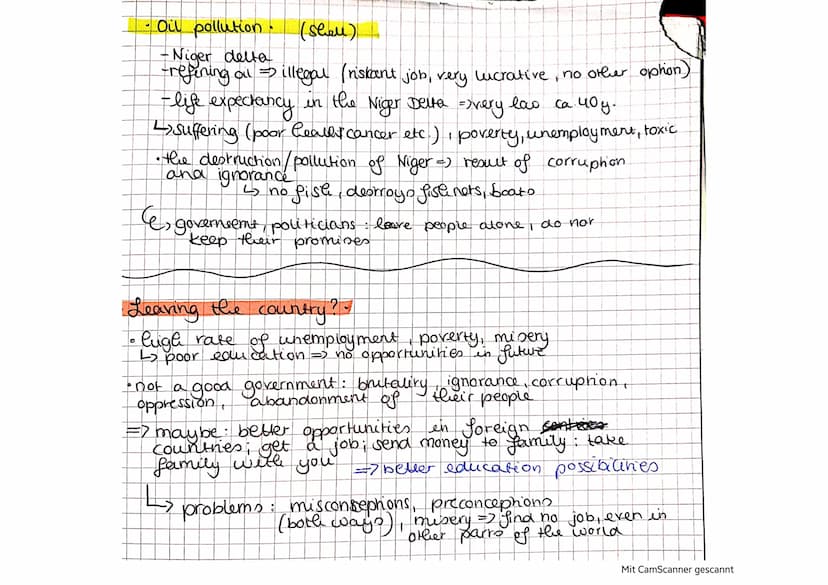 · Oil pollution · (Shell)
- Niger delta
- refining oil => illegal (riskant job, very lucrative, no other option)
- life expectancy in the Niger Delta => very low ca. 40 y.
↳ suffering (poor health cancer etc.), poverty, unemployment, toxic
· the destruction/pollution of Niger => result of corruption
and ignorance
↳ no fish, destroys fishnets, boats
↳ government, politicians: leave people alone, do not
keep their promises
Leaving the country? ·
· high rate of unemployment, poverty, misery
↳ poor education => no opportunities in future
· not a good government: brutality, ignorance, corruption,
oppression, abandonment of their people
=> maybe: better opportunities in foreign
countries; get a job; send money to family; take
family with you => better education possibilities
↳ problems: misconseptions, preconceptions
(both ways), misery => find no job, even in
other parts of the world
Mit CamScanner gescannt